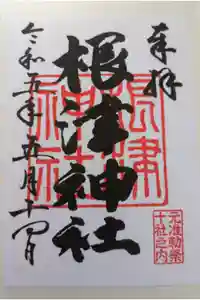 奉拝
根津神社
根津神社
元准勅祭
十社之内
令和五年五月十四日